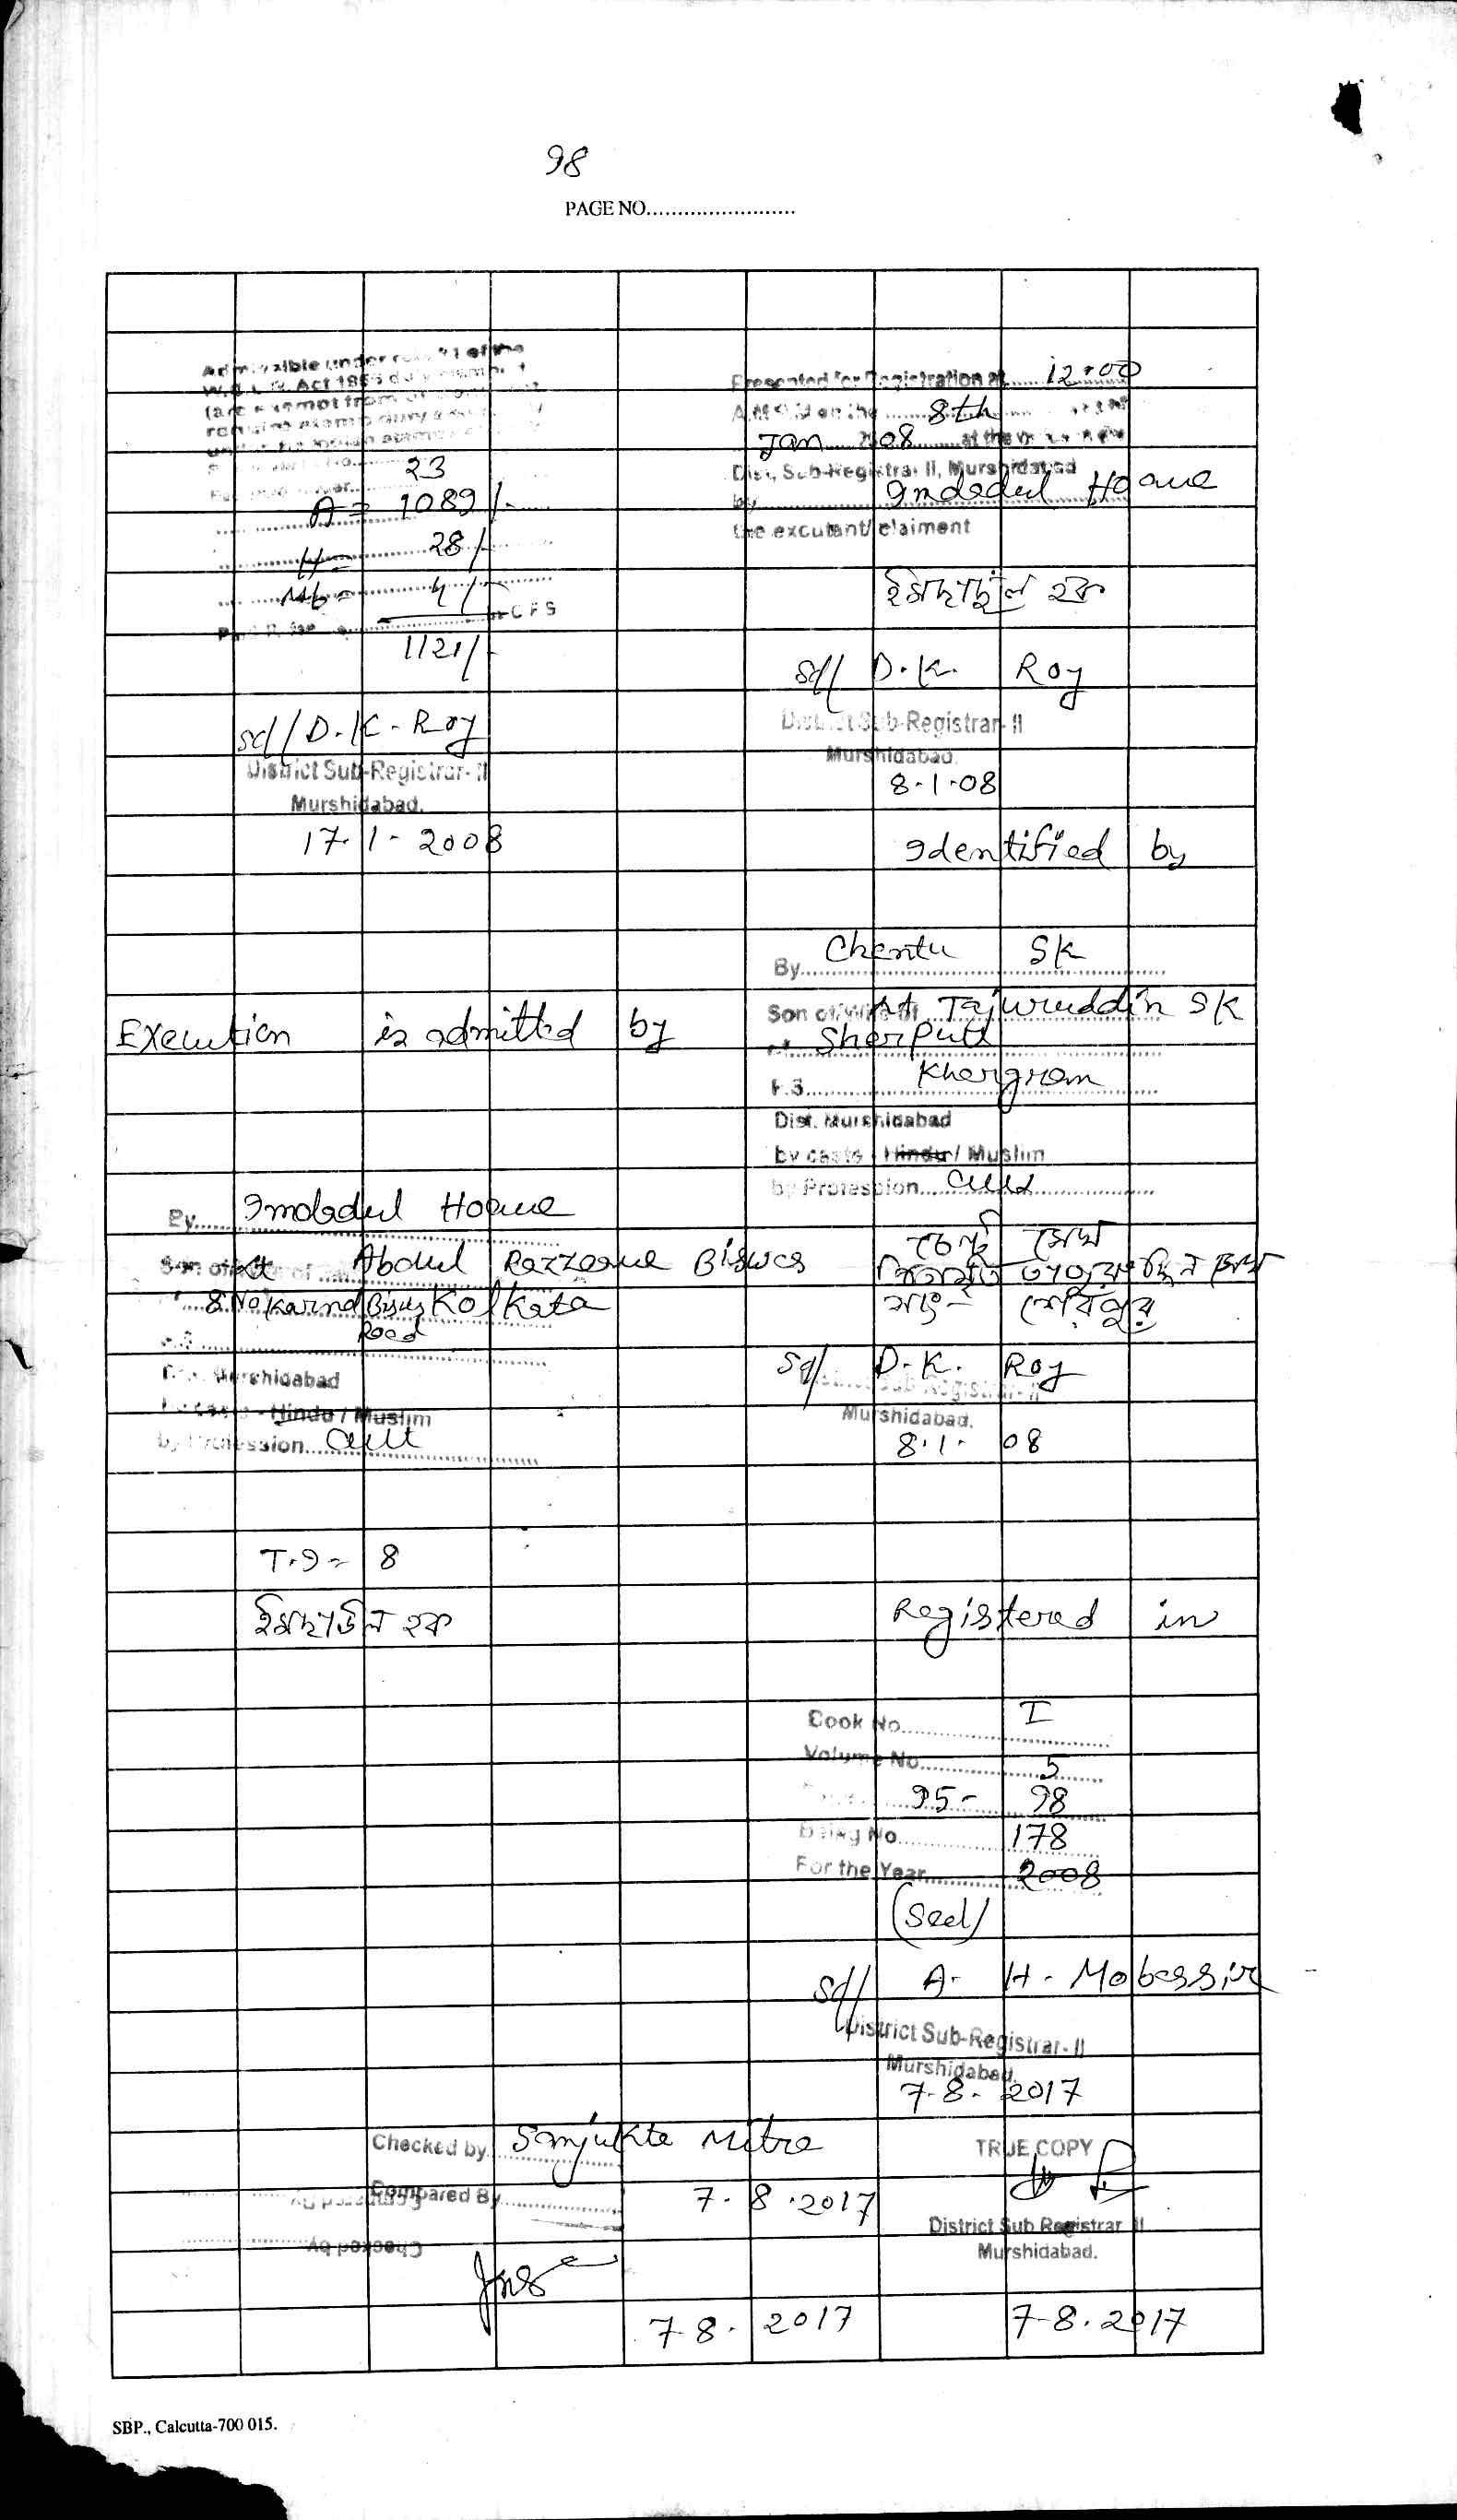 98
PAGE NO.
Admissible under of the
W.B.L.R. Act 1955 duly
exempt from
23
A = 1089/-
H = 28/-
Mb = 4/-
1121/-
sd// D.K. Roy
District Sub-Registrar-II
Murshidabad.
17.1-2008
Execution is admitted by
By Imdadul Hoque
Son of Abdul Razzaque Biswas
Kolkata
Road
Murshidabad
Hindu / Muslim
by Profession Cult
T.I = 8
ইমদাদুল হক
Presented for Registration at 12.00
A.M on the 8th
Jan 2008 at the
Dist. Sub-Registrar II, Murshidabad
by Imdadul Hoque
the excutant/claiment
ইমদাদুল হক
sd// D.K. Roy
District Sub-Registrar-II
Murshidabad.
8-1-08
Identified by
By Chentu Sk
Son of Tajuruddin Sk
Sherpur
P.S. Khargram
Dist. Murshidabad
by caste Hindu / Muslim
by Profession Cult
সেখ
সাং- শেরপুর
Sd/ D.K. Roy
District Sub-Registrar-II
Murshidabad.
8.1.08
Registered in
Book No. I
Volume No. 5
95-98
Being No. 178
For the Year 2008
(Seal)
sd// A. H. Mobassir
District Sub-Registrar-II
Murshidabad.
7-8-2017
Checked by Sanjukta Mitra
7.8.2017
Compared By
7-8.2017
TRUE COPY
District Sub Registrar II
Murshidabad.
7-8.2017
SBP., Calcutta-700 015.